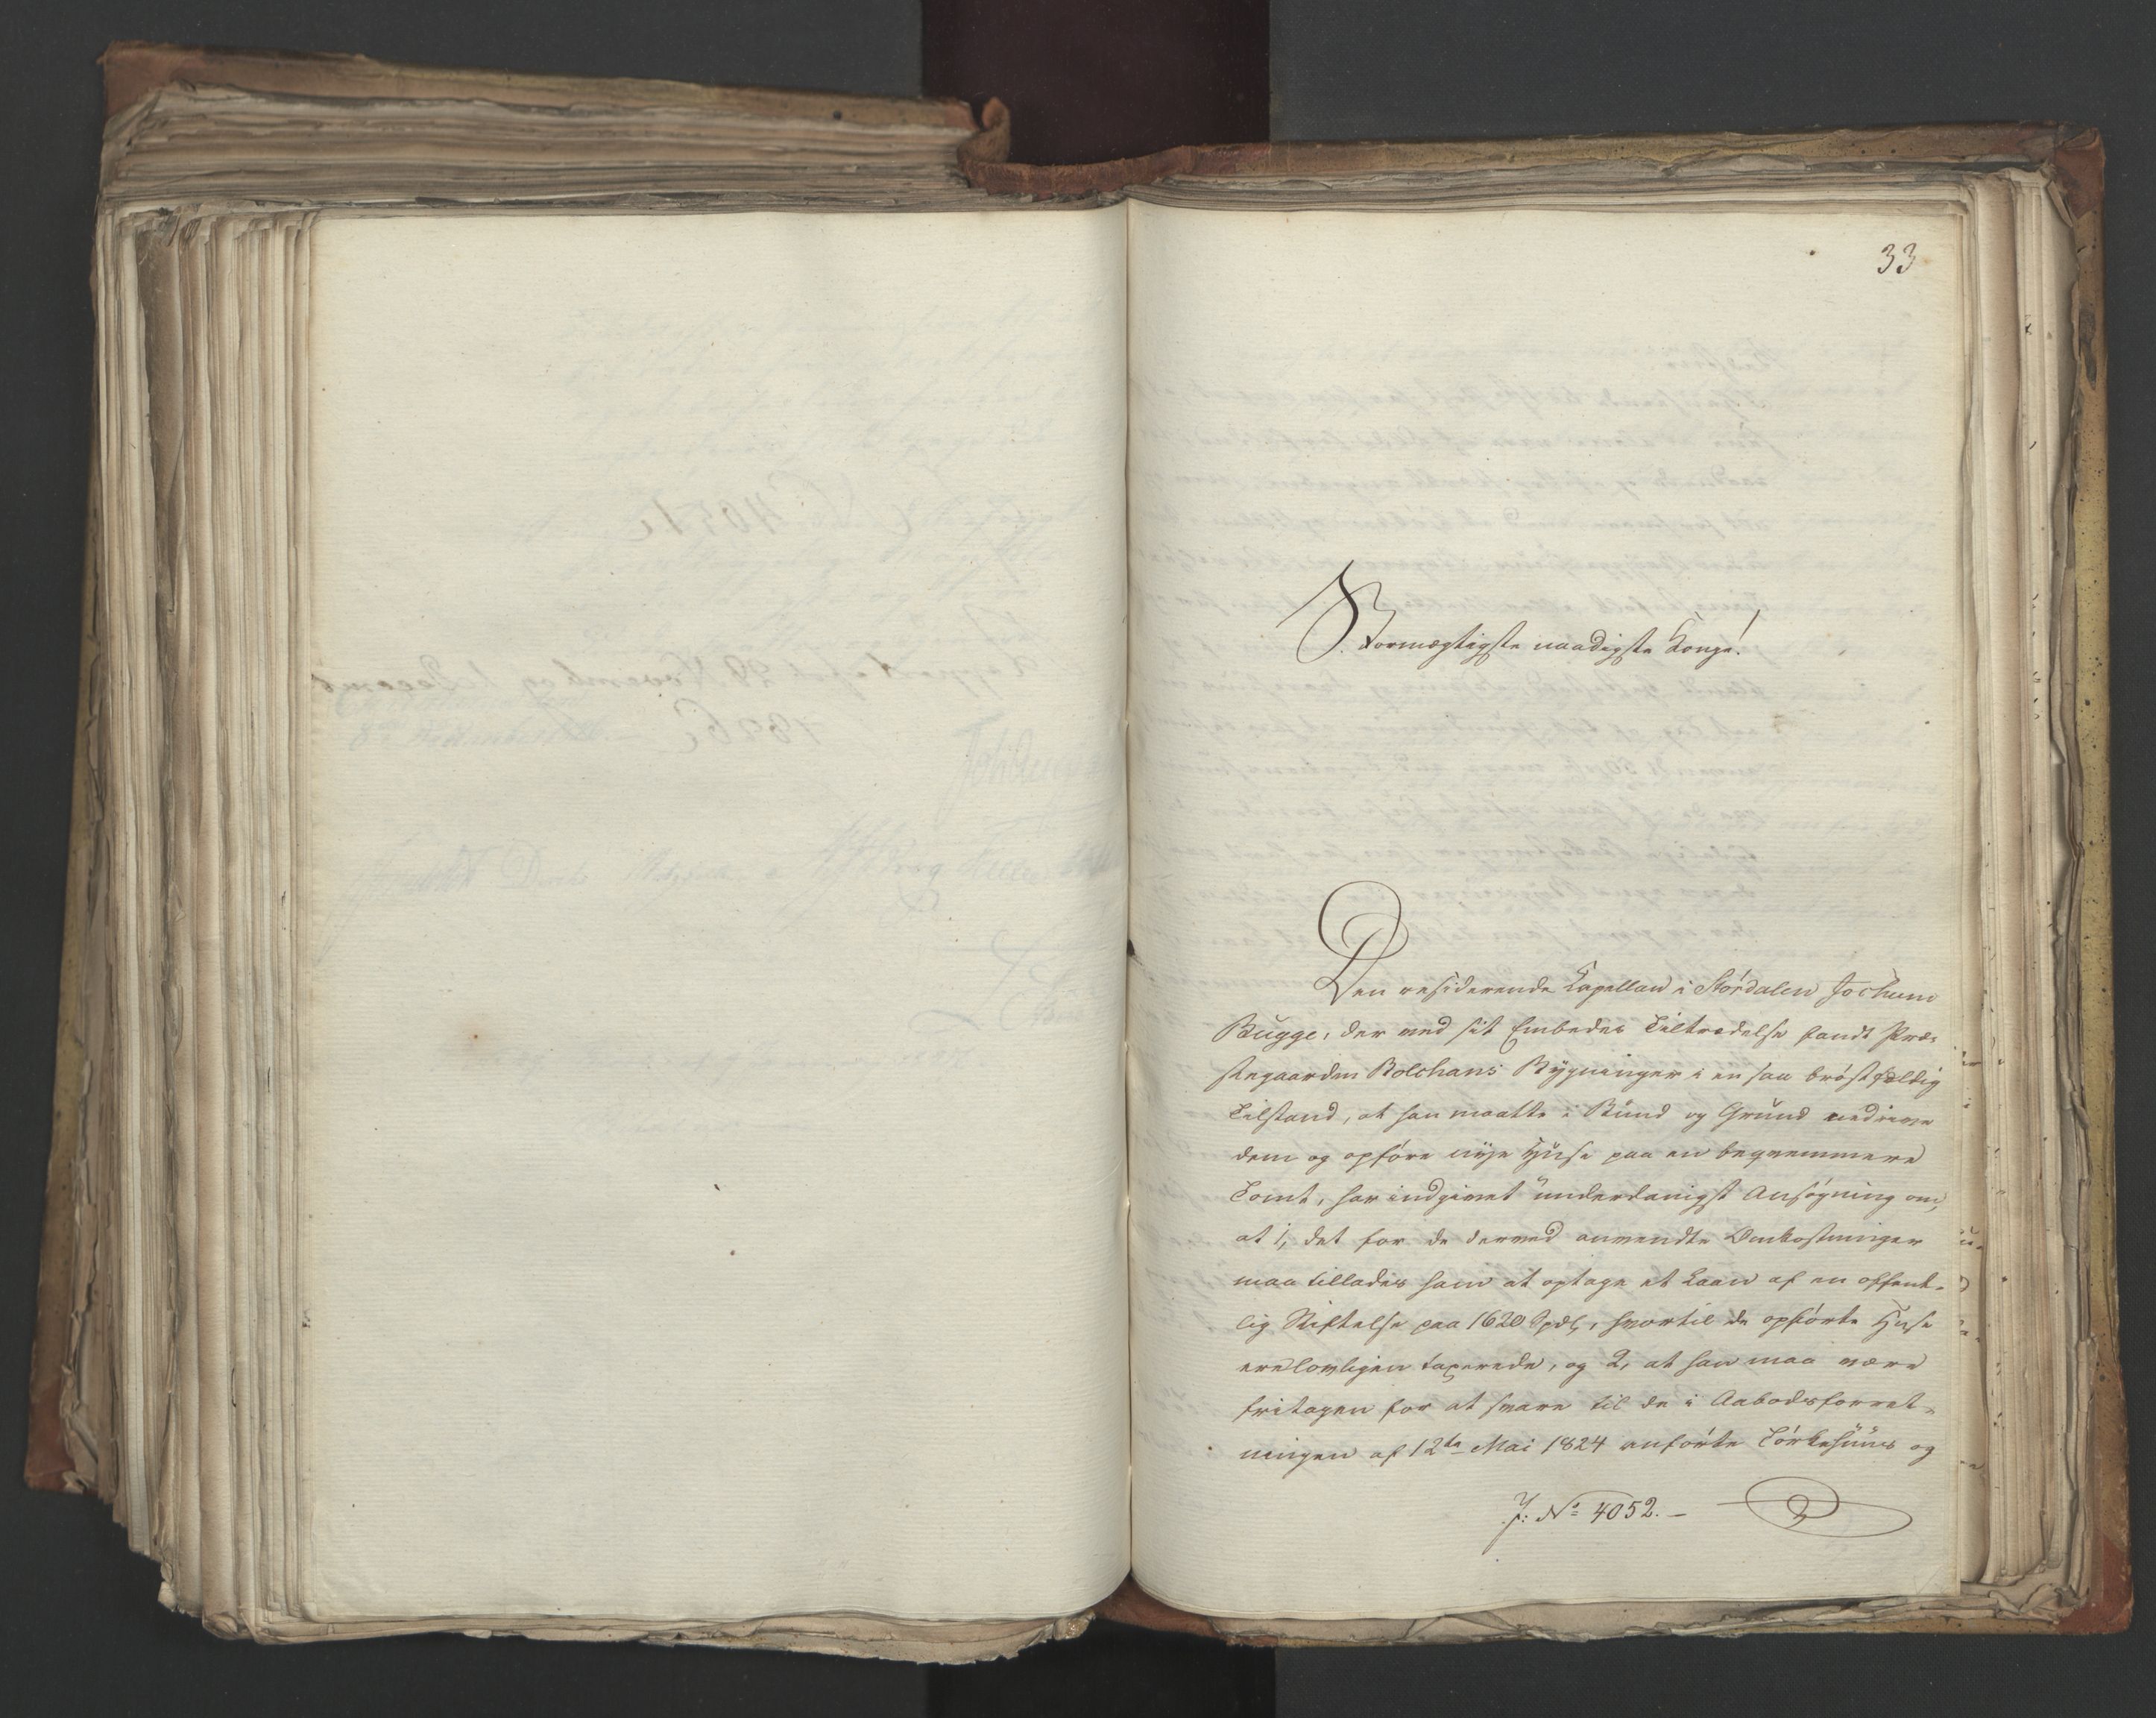 33
Stormægtigste naadigste Konge!
Den residerende Kapellan i Størdalen Jochum
Bugge, der ved sit Embedes Tiltrædelse fandt Præ-
stegaarden Bolchans Bygninger i en saa brøstfældig
Tilstand, at han maatte i Bund og Grund nedrive
dem og opføre nye Huse paa en beqvemmere
Tomt, har indgivet underdanigst Ansøgning om,
at 1, det for de derved anvendte Omkostninger
maa tillades ham at optage et Laan af en offent-
lig Stiftelse paa 1620 Spdl, hvortil de opførte Huse
ere lovligen taxerede, og 2, at han maa være
fritagen for at svare til de i Aabodsforret-
ningen af 12te Mai 1824 anførte Tørkehuus og
J: No 4052. -